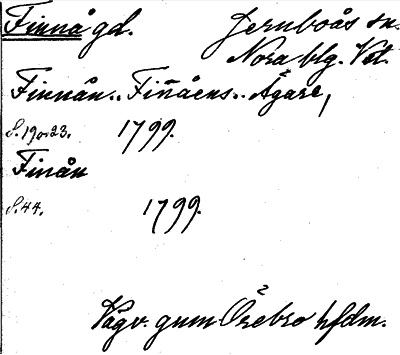 Finnå gd. Jernboås sn.
Nora blg. Vstl.
Finnån.. Finnåens.. Ägare,
S. 19 o. 23. 1799.
Finån
S. 44. 1799.
Vägv. gnm Örebro hfdm.